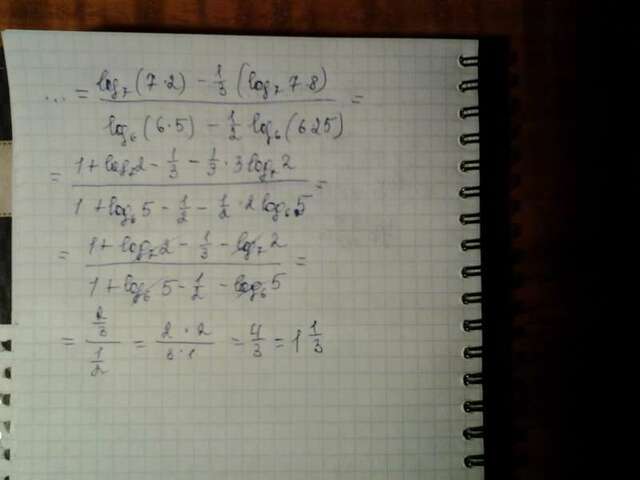 ... = (log₇(7·2) - 1/3 (log₇ 7·8)) / (log₆(6·5) - 1/2 log₆(625)) =
= (1 + log₇2 - 1/3 - 1/3 · 3log₇2) / (1 + log₆5 - 1/2 - 1/2 · 2log₆5) =
= (1 + log₇2 - 1/3 - log₇2) / (1 + log₆5 - 1/2 - log₆5) =
= (2/3) / (1/2) = (2 · 2) / (3 · 1) = 4/3 = 1 1/3